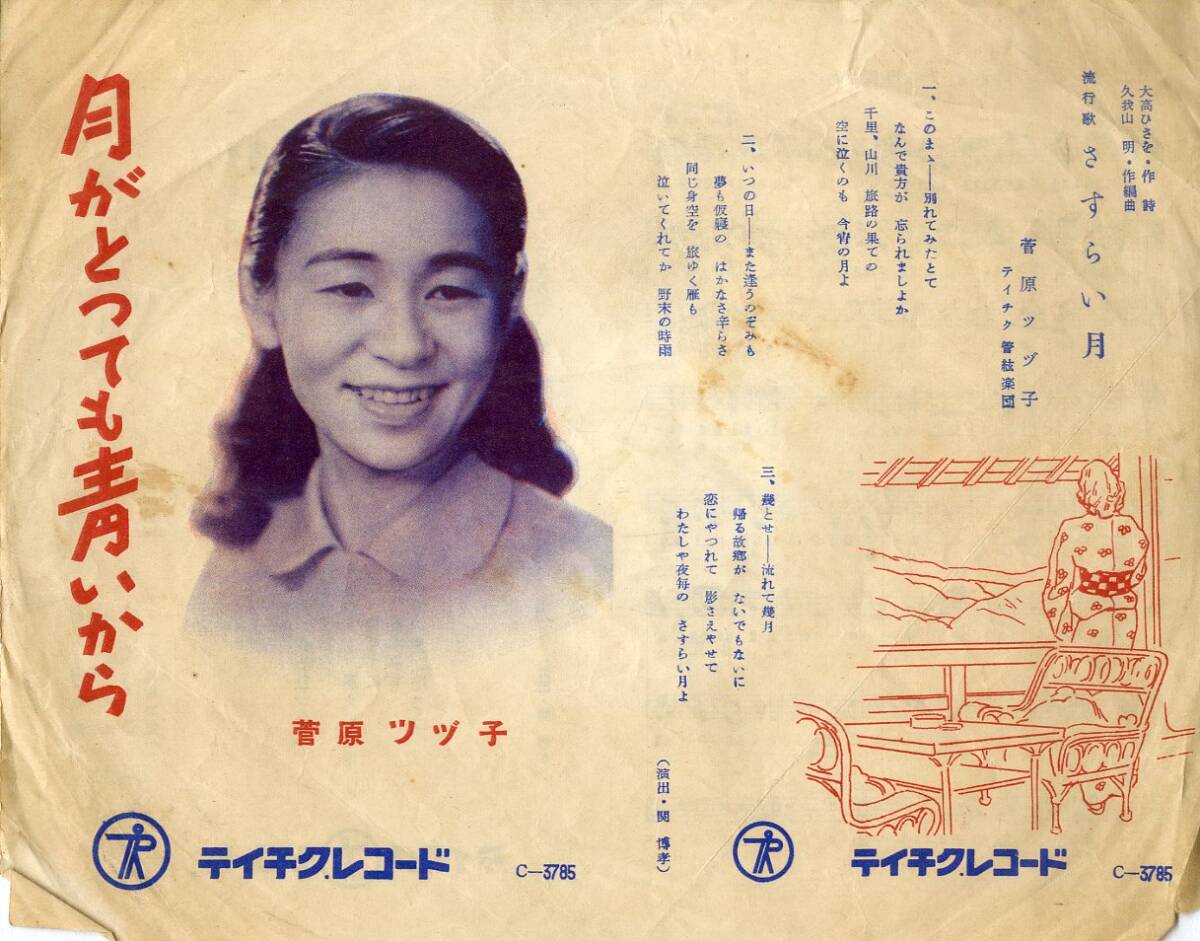 大高ひさを・作詩
久我山 明・作編曲
流行歌 さすらい月
菅原ツヅ子
テイチク管絃楽団
一、このまゝ——別れてみたとて
なんで貴方が 忘られましよか
千里、山川 旅路の果ての
空に泣くのも 今宵の月よ
二、いつの日——また逢うのぞみも
夢も仮寝の はかなさ辛らさ
同じ身空を 旅ゆく雁も
泣いてくれてか 野末の時雨
三、幾とせ——流れて幾月
帰る故郷が ないでもないに
恋にやつれて 影さえやせて
わたしや夜毎の さすらい月よ
(演出・関 博孝)
テイチク.レコード
C—3785
月がとつても青いから
菅原ツヅ子
テイチク.レコード
C—3785